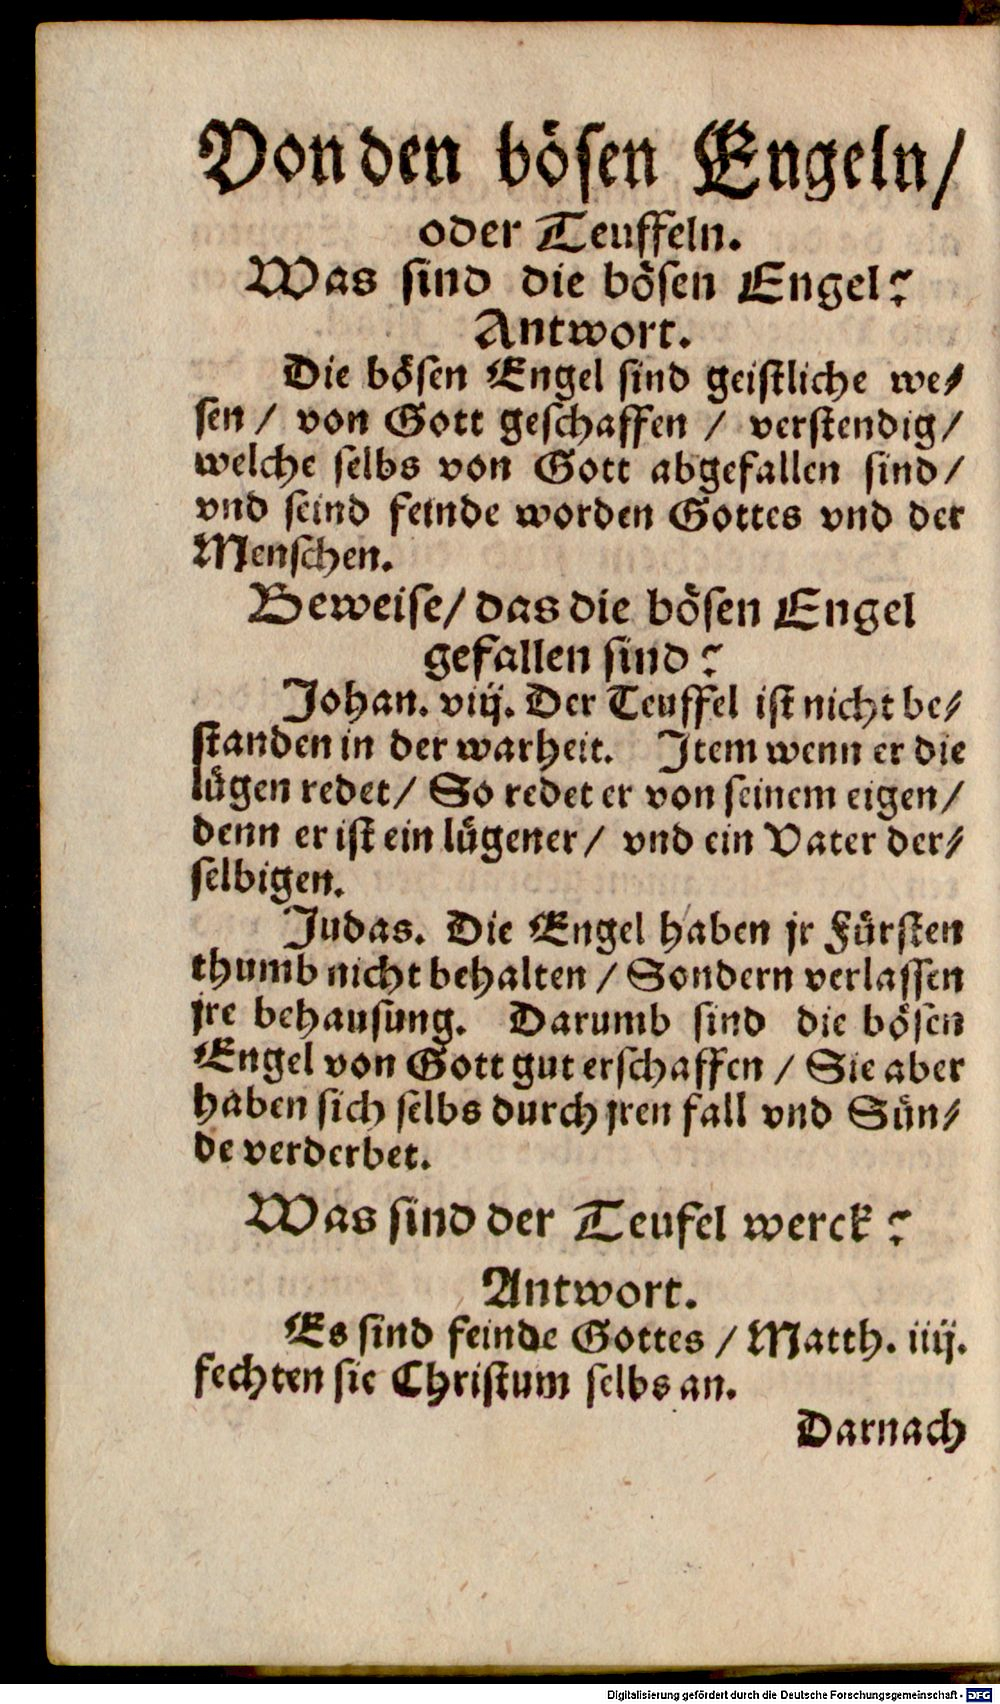 Von den bösen Engeln/
oder Teuffeln.
Was sind die bösen Engel?
Antwort.
Die bösen Engel sind geistliche we-
sen / von Gott geschaffen / verstendig/
welche selbs von Gott abgefallen sind/
vnd seind feinde worden Gottes vnd der
Menschen.
Beweise/ das die bösen Engel
gefallen sind?
Johan. viij. Der Teuffel ist nicht be-
standen in der warheit. Item wenn er die
lügen redet/ So redet er von seinem eigen/
denn er ist ein lügener/ vnd ein Vater der-
selbigen.
Judas. Die Engel haben jr Fürsten
thumb nicht behalten / Sondern verlassen
jre behausung. Darumb sind die bösen
Engel von Gott gut erschaffen / Sie aber
haben sich selbs durch jren fall vnd Sün-
de verderbet.
Was sind der Teufel werck?
Antwort.
Es sind feinde Gottes / Matth. iiij.
fechten sie Christum selbs an.
Darnach
Digitalisierung gefördert durch die Deutsche Forschungsgemeinschaft - DFG